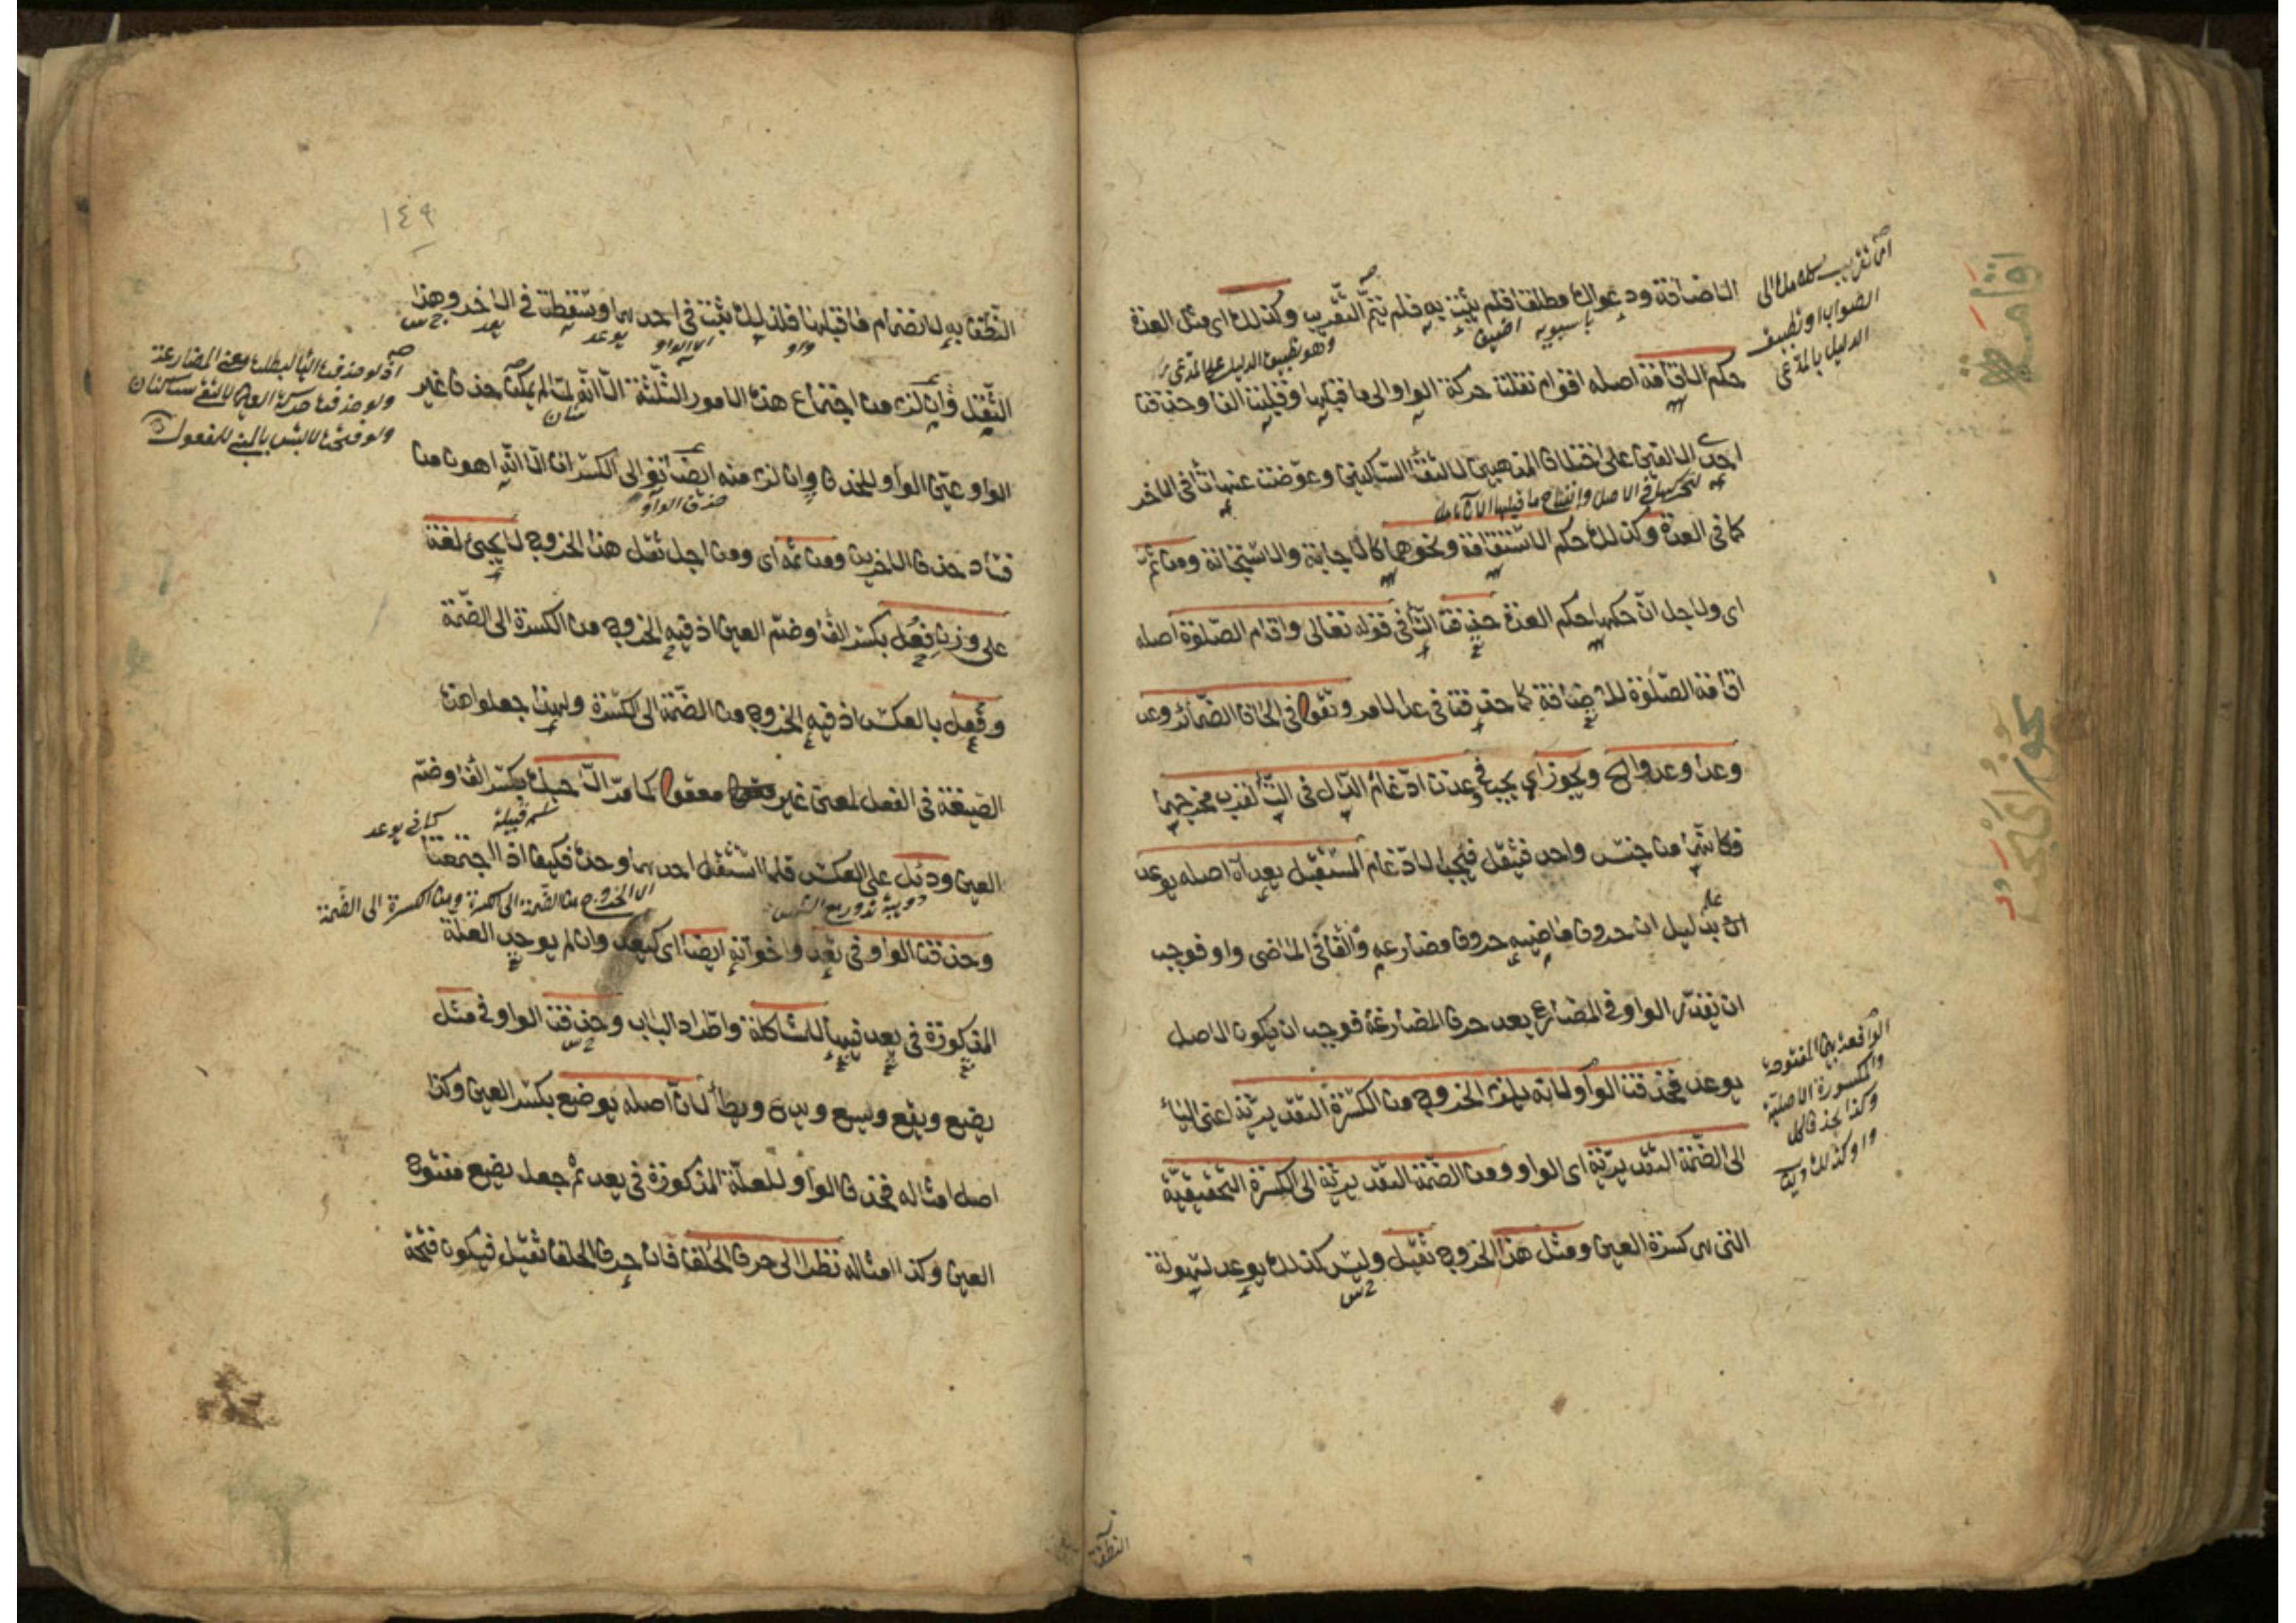 الاضافة ودعوان مطلقا فلم يثبت به فلم يتم التقريب وكذلك اى مثل العدة
حكم الاقامة اصله اقوام نقلت حركة الواو الى ما قبلها وقلبت الفا وحذفت
احدى الالفين على اختلاف المذهبين لالتقاء الساكنين وعوضت عنها تاء فى الاخر
كما فى العدة وكذلك حكم الاستقامة ونحوهما كالاجابة والاستجابة ومن ثم
اى ولاجل ان حكمها حكم العدة حذفت التاء فى قوله تعالى واقام الصلوة اصله
اقامة الصلوة للاضافة كما حذفت فى عد الامر وتقول فى الحاق الضمائر وعد
وعدا وعدوا الخ ويجوز اى يجب فى وعدت ادغام الدال فى التاء لقرب مخرجهما
فكانتا من جنس واحد فيثقل فيجب الادغام المستقبل يعد اه اصله يوعد
بدليل ان حروف ماضيه حروف مضارعه والفاء فى الماضى واو فوجب
ان تقدر الواو فى المضارع بعد حرف المضارعة فوجب ان يكون الاصل
يوعد فحذفت الواو لانه يلزم الخروج من الكسرة التقديرية اعنى الياء
الى الضمة التقديرية اى الواو ومن الضمة التقديرية الى الكسرة التحقيقية
التى هى كسرة العين ومثل هذا الخروج ثقيل وليس كذلك يوعد لسهولة
وهو تطبيق الدليل على المدعى
لتحركها فى الاصل وانفتاح ما قبلها الآن
الصواب او تطبيق
الدليل بالمدعى
الواقعة بين المفتوحة
والكسورة الاصلية
وكذا يحذف كل
واو كذلك
النطق
١٤٩
النطق به لانضمام ما قبلها فلذلك ثبت فى احدهما وسقطت فى الاخر وهذا
الثقل وان لزم من اجتماع هذه الامور الثلثة الا انه لما لم يمكن حذف غير
الواو عين الواو للحذف وان لزم منه ايضا توالى الكسرات الا انه اهون من
فساد حذف الاخرين ومن ثمه اى ومن اجل ثقل هذا الخروج لا يجئ لغة
على وزن فعل بكسر الفاء وضم العين اذ فيه الخروج من الكسرة الى الضمة
وفعل بالعكس اذ فيه الخروج من الضمة الى الكسرة ولهذا جعلوا هذه
الصيغة فى الفعل لمعنى غير معقول كما مر الا حبك بكسر الفاء وضم
العين ودئل على العكس فلما استثقل احدهما وحده فكيف اذا اجتمعتا
وحذفت الواو فى تعد واخواته ايضا اى كيعد وان لم يوجب العلة
المذكورة فى يعد فيها للمشاكلة واطراد الباب وحذفت الواو فى مثل
يضع ويقع ويسع ويدع ويطأ لان اصله يوضع بكسر العين وكذا
اصل امثاله فحذف الواو للعلة المذكورة فى يعد ثم جعل يضع مفتوح
العين وكذا امثاله نظرا الى حرف الحلق فان حرف الحلق ثقيل فيكون فتحة
حذف الواو
اسم قبيلة
كما فى يوعد
دويبة تدور مع الشمس
الخروج من الضمة الى الكسرة ومن الكسرة الى الضمة